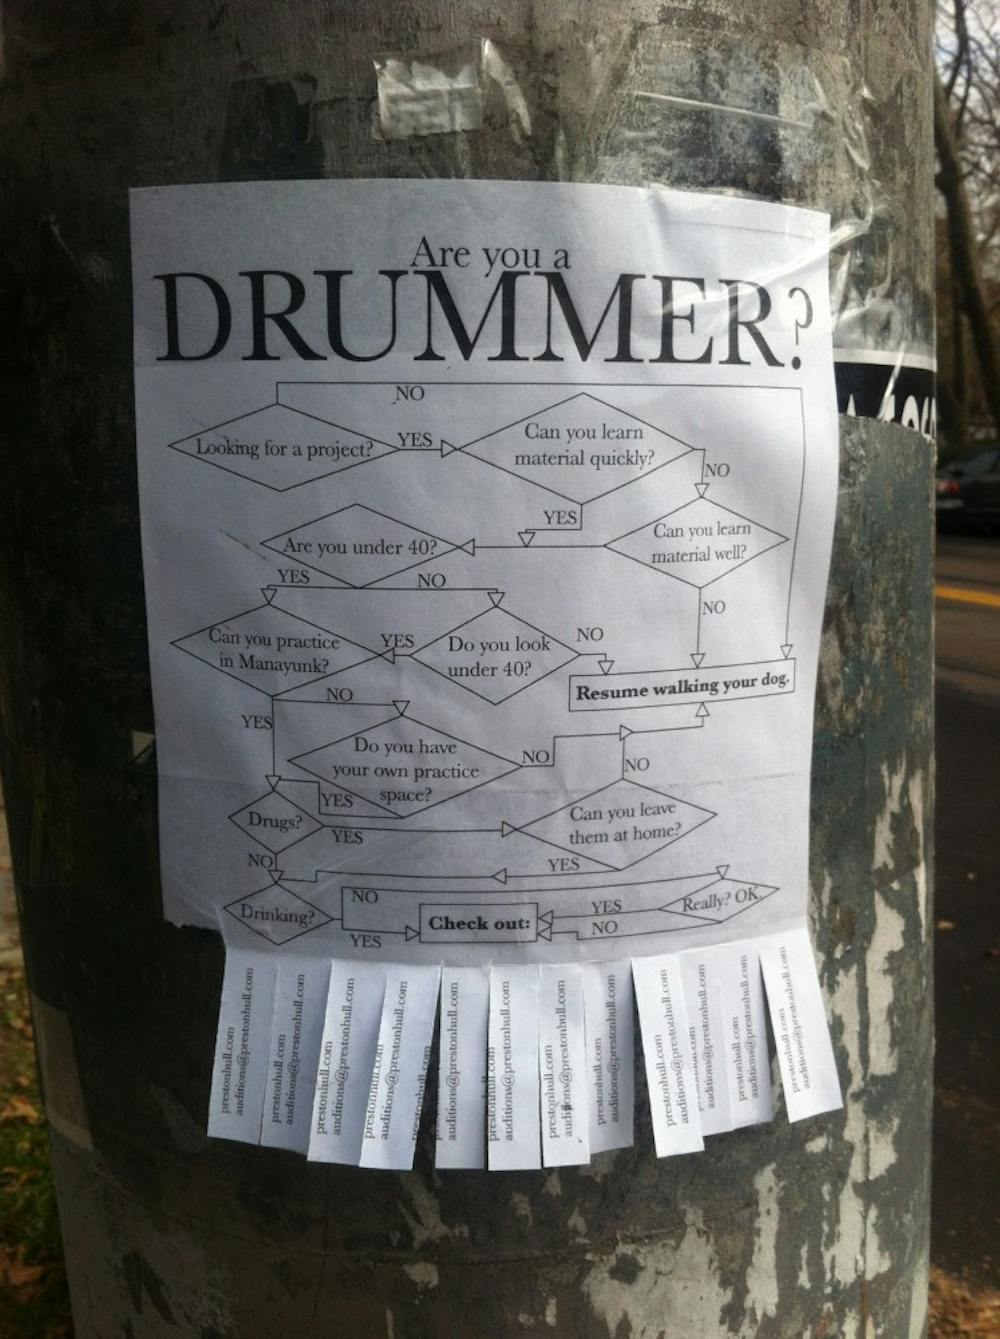 Are you a
DRUMMER?
NO
Looking for a project?
YES
Can you learn
material quickly?
NO
YES
Can you learn
material well?
Are you under 40?
YES
NO
NO
Can you practice
in Manayunk?
YES
Do you look
under 40?
NO
Resume walking your dog.
NO
YES
Do you have
your own practice
space?
NO
NO
YES
Drugs?
YES
Can you leave
them at home?
NO
YES
Drinking?
NO
YES
Check out:
YES
NO
Really? OK.
prestonhull.com
auditions@prestonhull.com
prestonhull.com
auditions@prestonhull.com
prestonhull.com
auditions@prestonhull.com
prestonhull.com
auditions@prestonhull.com
prestonhull.com
auditions@prestonhull.com
prestonhull.com
auditions@prestonhull.com
prestonhull.com
auditions@prestonhull.com
prestonhull.com
auditions@prestonhull.com
prestonhull.com
auditions@prestonhull.com
auditions@prestonhull.com
prestonhull.com
auditions@prestonhull.com
prestonhull.com
auditions@prestonhull.com